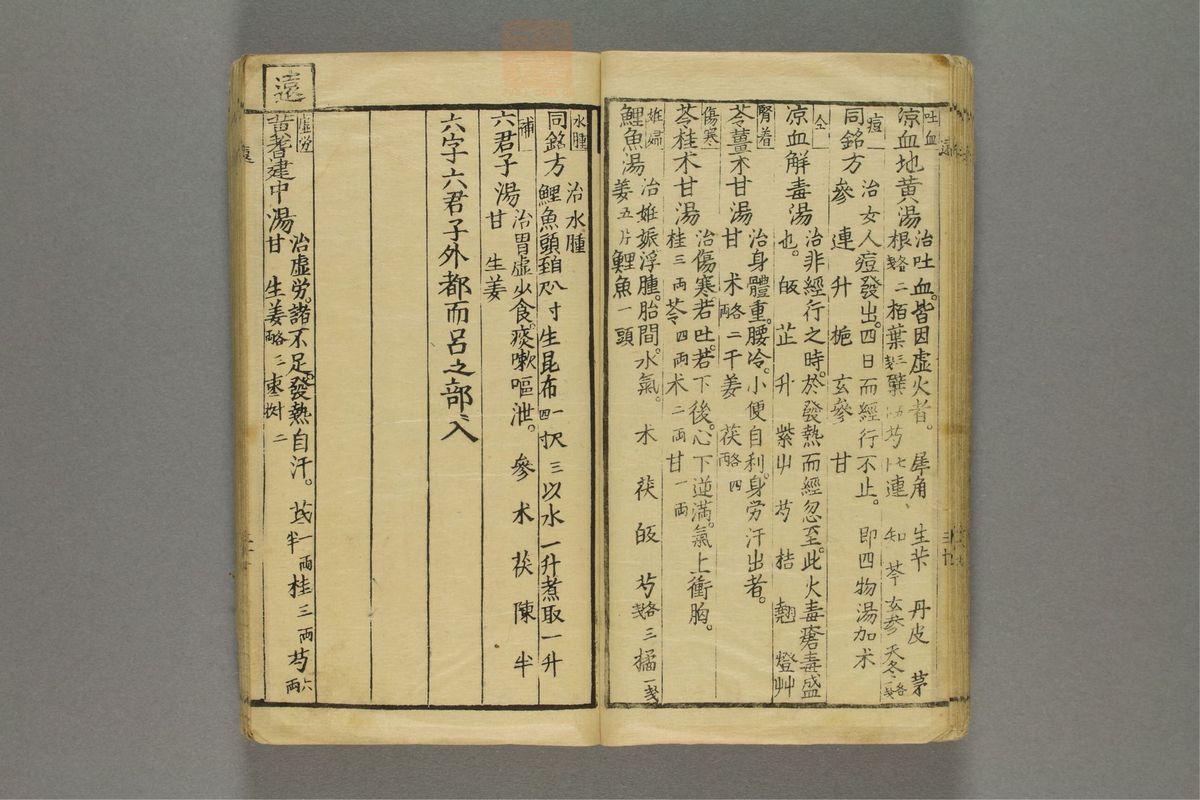 吐血
涼血地黄湯
治吐血。皆因虚火者。犀角 生芐 丹皮 茅
根 各戔二 栢葉 連 知 芩 玄参 天冬 各一戔
痘
同銘方
治女人痘發出。四日而經行不止。即四物湯加术
參 連 升 梔 玄參 甘
仝
凉血解毒湯
治非經行之時。於發熱而經忽至。此火毒瘡毒盛
也。 皈 芷 升 紫山 芍 桔 翹 燈艸
腎着
苓薑术甘湯
治身體重。腰冷。小便自利。身労汗出者。
甘 术 各二両 干姜 茯 各四両
傷寒
苓桂术甘湯
治傷寒若吐。若下後。心下逆滿。氣上衝胸。
桂三両 苓四両 术二両 甘一両
姙婦
鯉魚湯
治姙娠浮腫。胎間。水氣。 术 茯 皈 芍 各三戔 橘 一戔
姜五片 鯉魚一頭
水腫
同銘方
治水腫
鯉魚頭 生昆布 以水一升煮取一升
補
六君子湯
治胃虚少食。痰嗽嘔泄。 參 术 茯 陳 半
甘 生姜
六字六君子外都而呂之部ニ入
遠
虚労
黄耆建中湯
治虚労。諸不足。發熱自汗。 芪一両半 桂三両 芍六両
甘 生姜 各三両 棗二